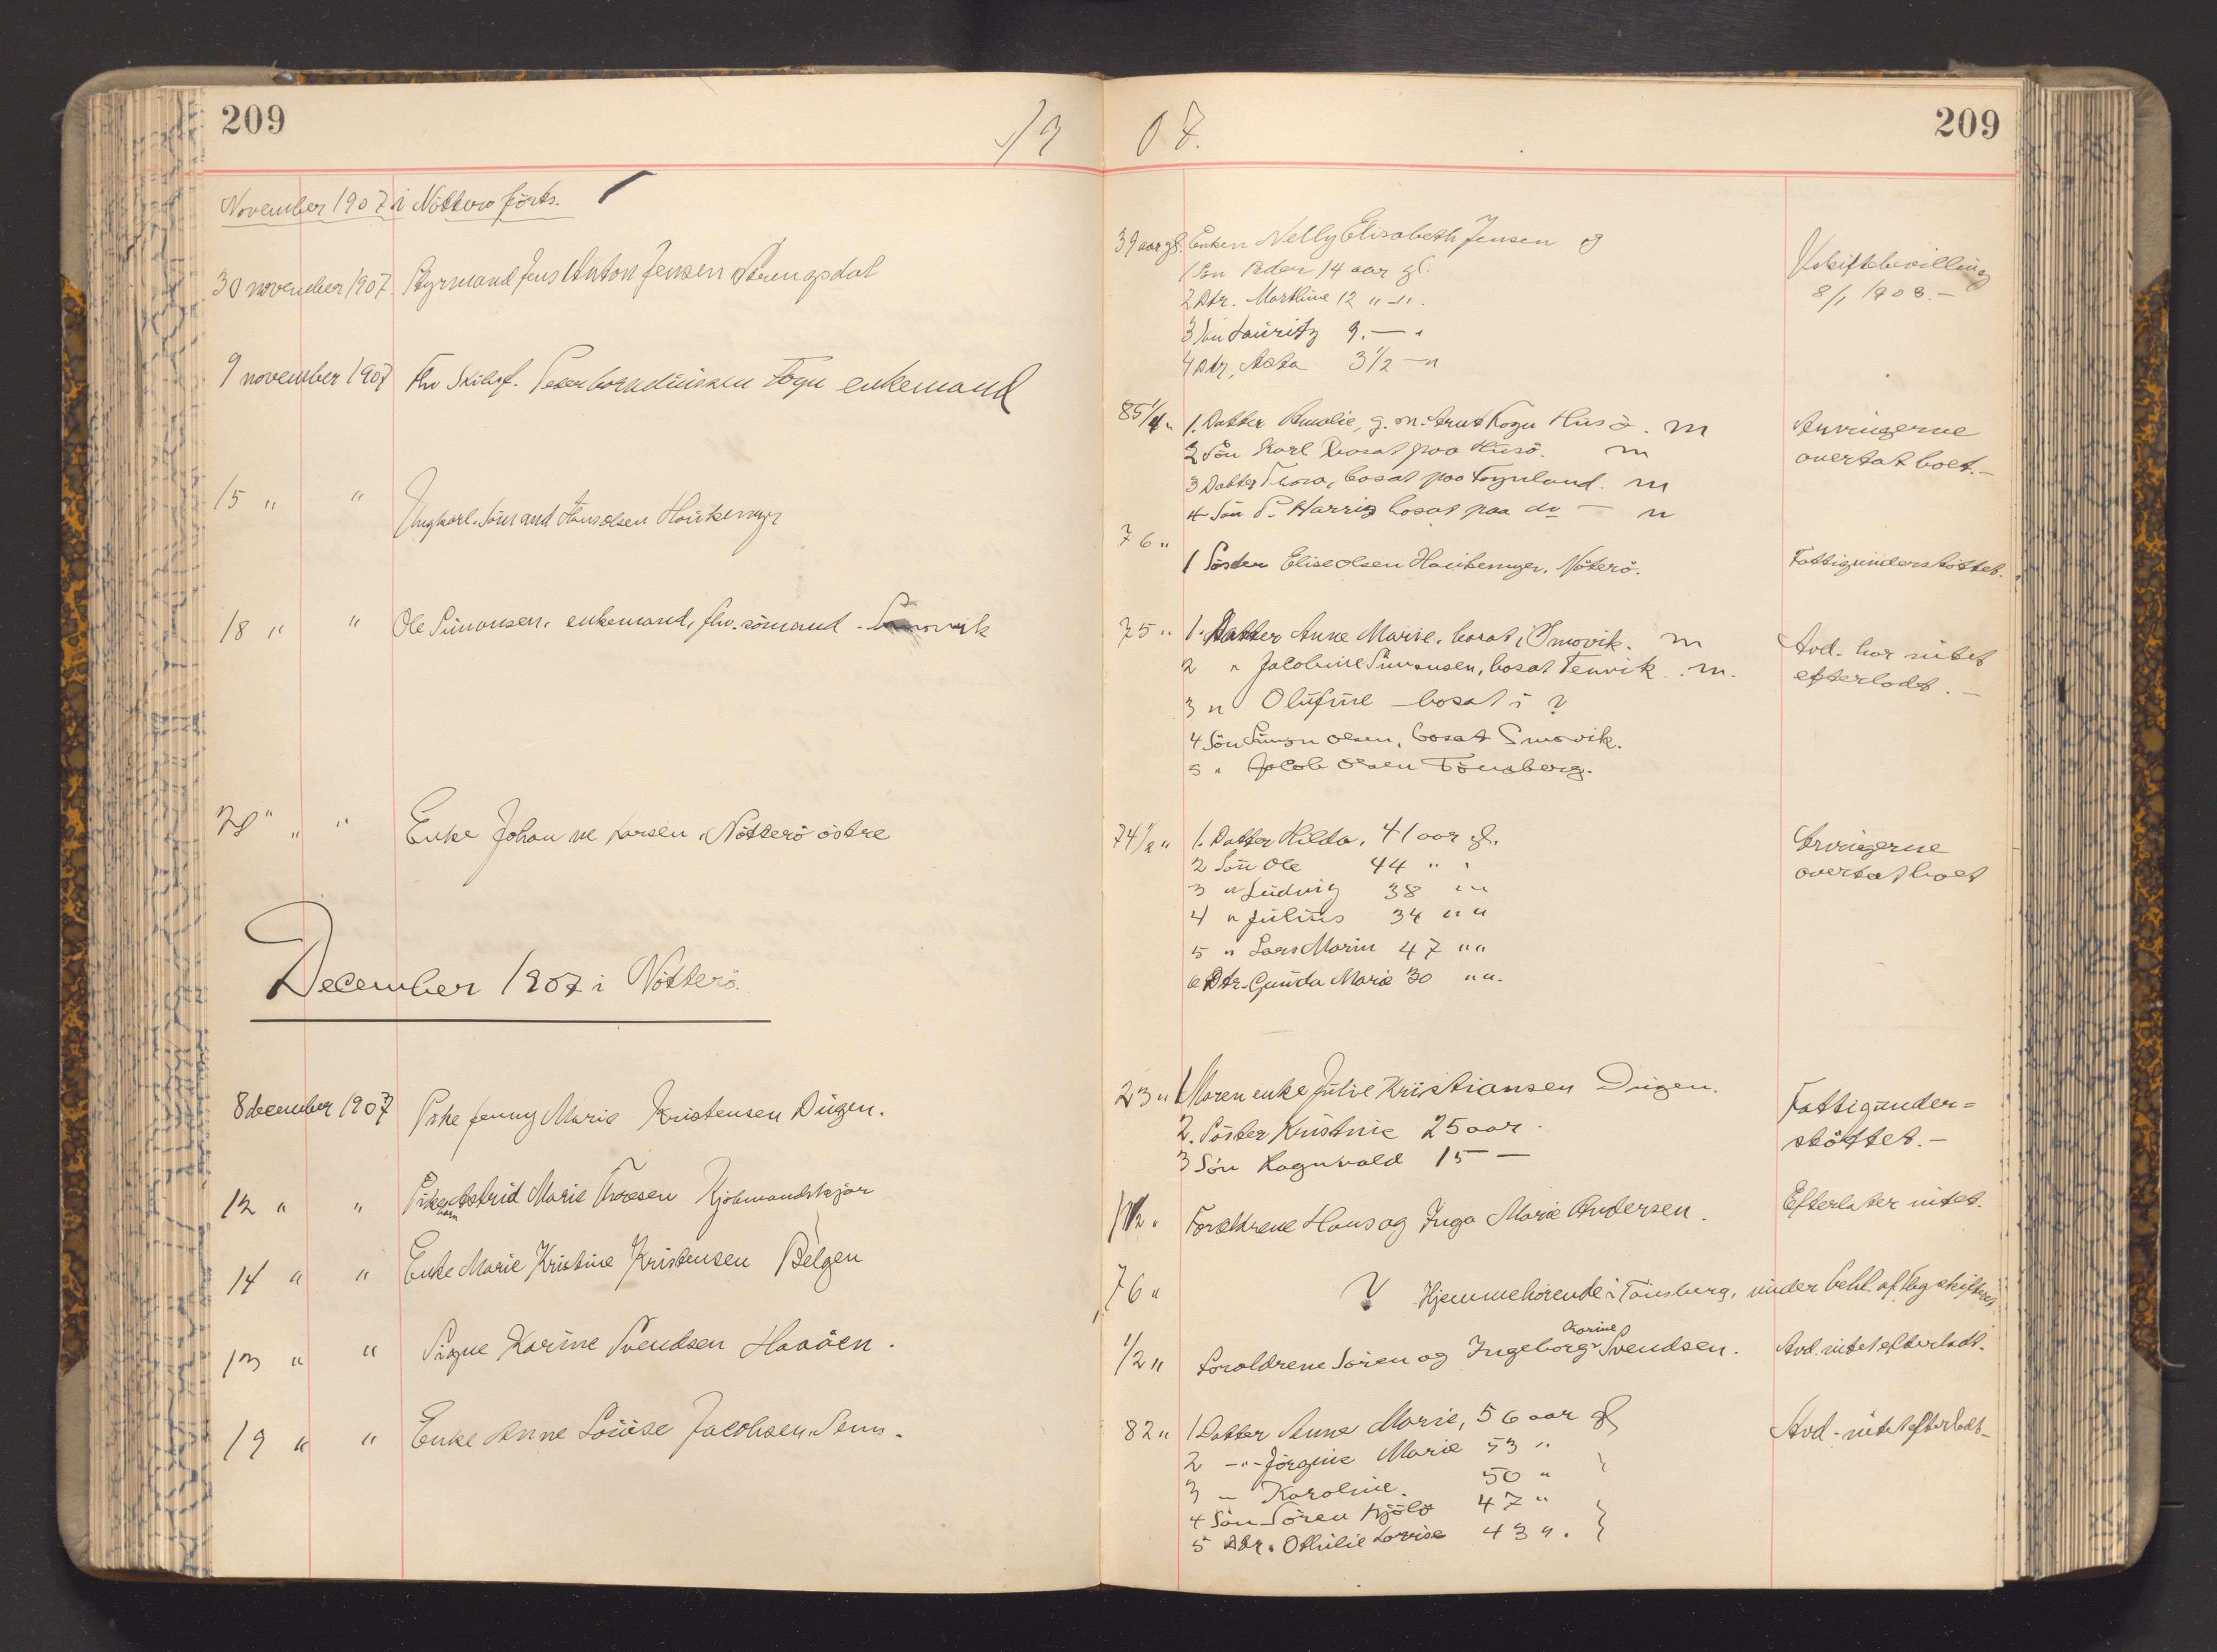 209
19
07.
209
November 1907 i Nötterø forts.
30 november 1907. Styrmand Jens Anton Jensen Strengsdal
9 november 1907 Fhv Skibsf. Peter Togn enkemand
15 " " Ungkarl. Sömand Hans Olsen Haukemyr
18 " " Ole Simonsen, enkemand, fhv. sömand - Smovik
28 " " Enke Johanne Larsen, Nötterö östre
December 1907 i Nötterö.
8 december 1907 Pike Jenny Marie Kristensen Dugen.
12 " " Pike Astrid Marie Thoresen Kjöbmandskjær
barn
14 " " Enke Marie Kristine Kristensen Bölgen
13 " " Signe Karine Svendsen Haaöen.
19 " " Enke Anne Louise Jacobsen, Sem.
39 aar gl. Enken Nelly Elisabeth Jensen og
1 Sön Peder 14 aar gl.
2 Dtr. Marthine 12 " - " .
3 Sön Lauritz 9. — "
4 Dtr. Aasta 3 1/2 — "
Uskiftebevilling
8/1 1908. -
85 1/4 " 1. Datter Amalie, g. m. Arnt Togn Husö. m
2 Sön Karl bosat paa Husö. m
3 Datter Thora, bosat paa Tognland. m
4 Sön P. Harris bosat paa do — m
Arvingerne
overtat boet. -
76 "
1 Söster Elise Olsen Haukemyr, Nöterö.
Fattigunderstöttet.
75 " 1. Datter Anne Marie, bosat i Smovik. m
2 " Jacobine Simonsen, bosat Tenvik. m.
3 " Olufine - bosat i ?
4 Sön Simon Olsen, bosat Smovik.
5 " Jacob Olsen Tönsberg.
Avd. har intet
efterladt. -
74 1/2 " 1. Datter Hilda, 41 aar gl.
2 Sön Ole 44 " "
3 " Ludvig 38 " "
4 " Julius 34 " "
5 " Lars Marin 47 " "
6 Dtr. Gunda Marie 30 " " .
Arvingerne
overtat boet
23 " 1 Moren enke Julie Kristiansen Dugen.
2. Söster Kristine 25 aar.
3 Sön Ragnvald 15 —
Fattigunder=
støttet. -
1/2 " Forældrene Hans og Inga Marie Andersen.
Efterlater intet.
76 " ? Hjemmehörende i Tönsberg, under behl. af
1/2 " Foreldrene Sören og Ingeborg Svendsen.
Karine
Avd. intet efterladt.
82 " 1 Datter Anna Marie, 56 aar gl
2 - " - Jörgine Marie 53 "
3 - Karoline. 50 "
4 Sön Sören 47 "
5 Dtr. Othilie Lovise 43 " .
Avd - intet efterladt -